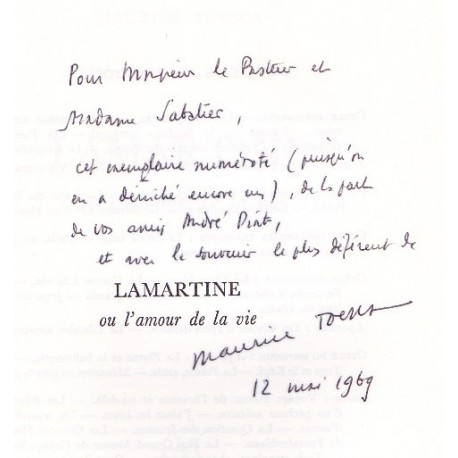 Pour Monsieur le Pasteur et
Madame Sabatier,
cet exemplaire numéroté (puisqu'on
en a déniché encore un), de la part
de vos amis André
et avec le souvenir le plus déférent de
LAMARTINE
ou l'amour de la vie
Maurice Toesca
12 mai 1969